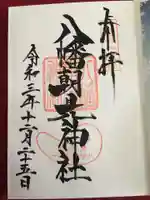 奉拝
八幡朝見神社
令和三年十二月二十五日